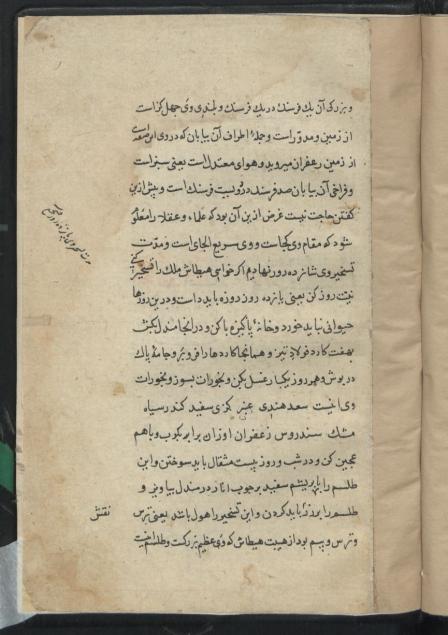 و بزرکی آن یك فرسنك در یك فرسنك و بلندی وی چهل کز است
از زمین و مدوّر است و جملهٔ اطراف آن بیابان که در وی این
از زمین زعفران میروید و هوای معتدل است یعنی سبز است
و فراخی آن بیابان صد فرسند در دویست فرسنك است و بیش ازین
کفتن حاجت نیست غرض از ین آن بود که علماء و عقلا را معلوم
شود که مقام وی کجاست و وی سریع الجای است و مدّت
تسخیر وی شانزده روز نهادیم اکر خواهی هیطاش ملك را تسخیر کنی
نیت روز کن یعنی پانزده روز روزه باید داشت و درین روزها
حیوانی نباید خورد و خانهٔ پاکیزه پاك کن و در انجا مندل بکش
بهفت کارد فولاد تیز و همانجا کاردها را فرو بر و جامهٔ پاك
در پوش و هر روز یکبار غسل بکن و بخورات بسوز و بخورات
وی اینست سعد هندی عنبر کزی سفید کندر سیاه
مشك سندروس زعفران اوزان برابر بکوب و باهم
عجین کن و در شب و روز بیست مثقال باید سوختن و این
طلسم را با بریشم سفید بر چوب انار در مندل بیاویز و
طلسم را بر زرٔ باید کردن و این تسخیر را هول باشد یعنی ترس
و ترس و بیم بود از هیبت هیطاش که وی عظیم بزرکست و طلسم اینست
نقش